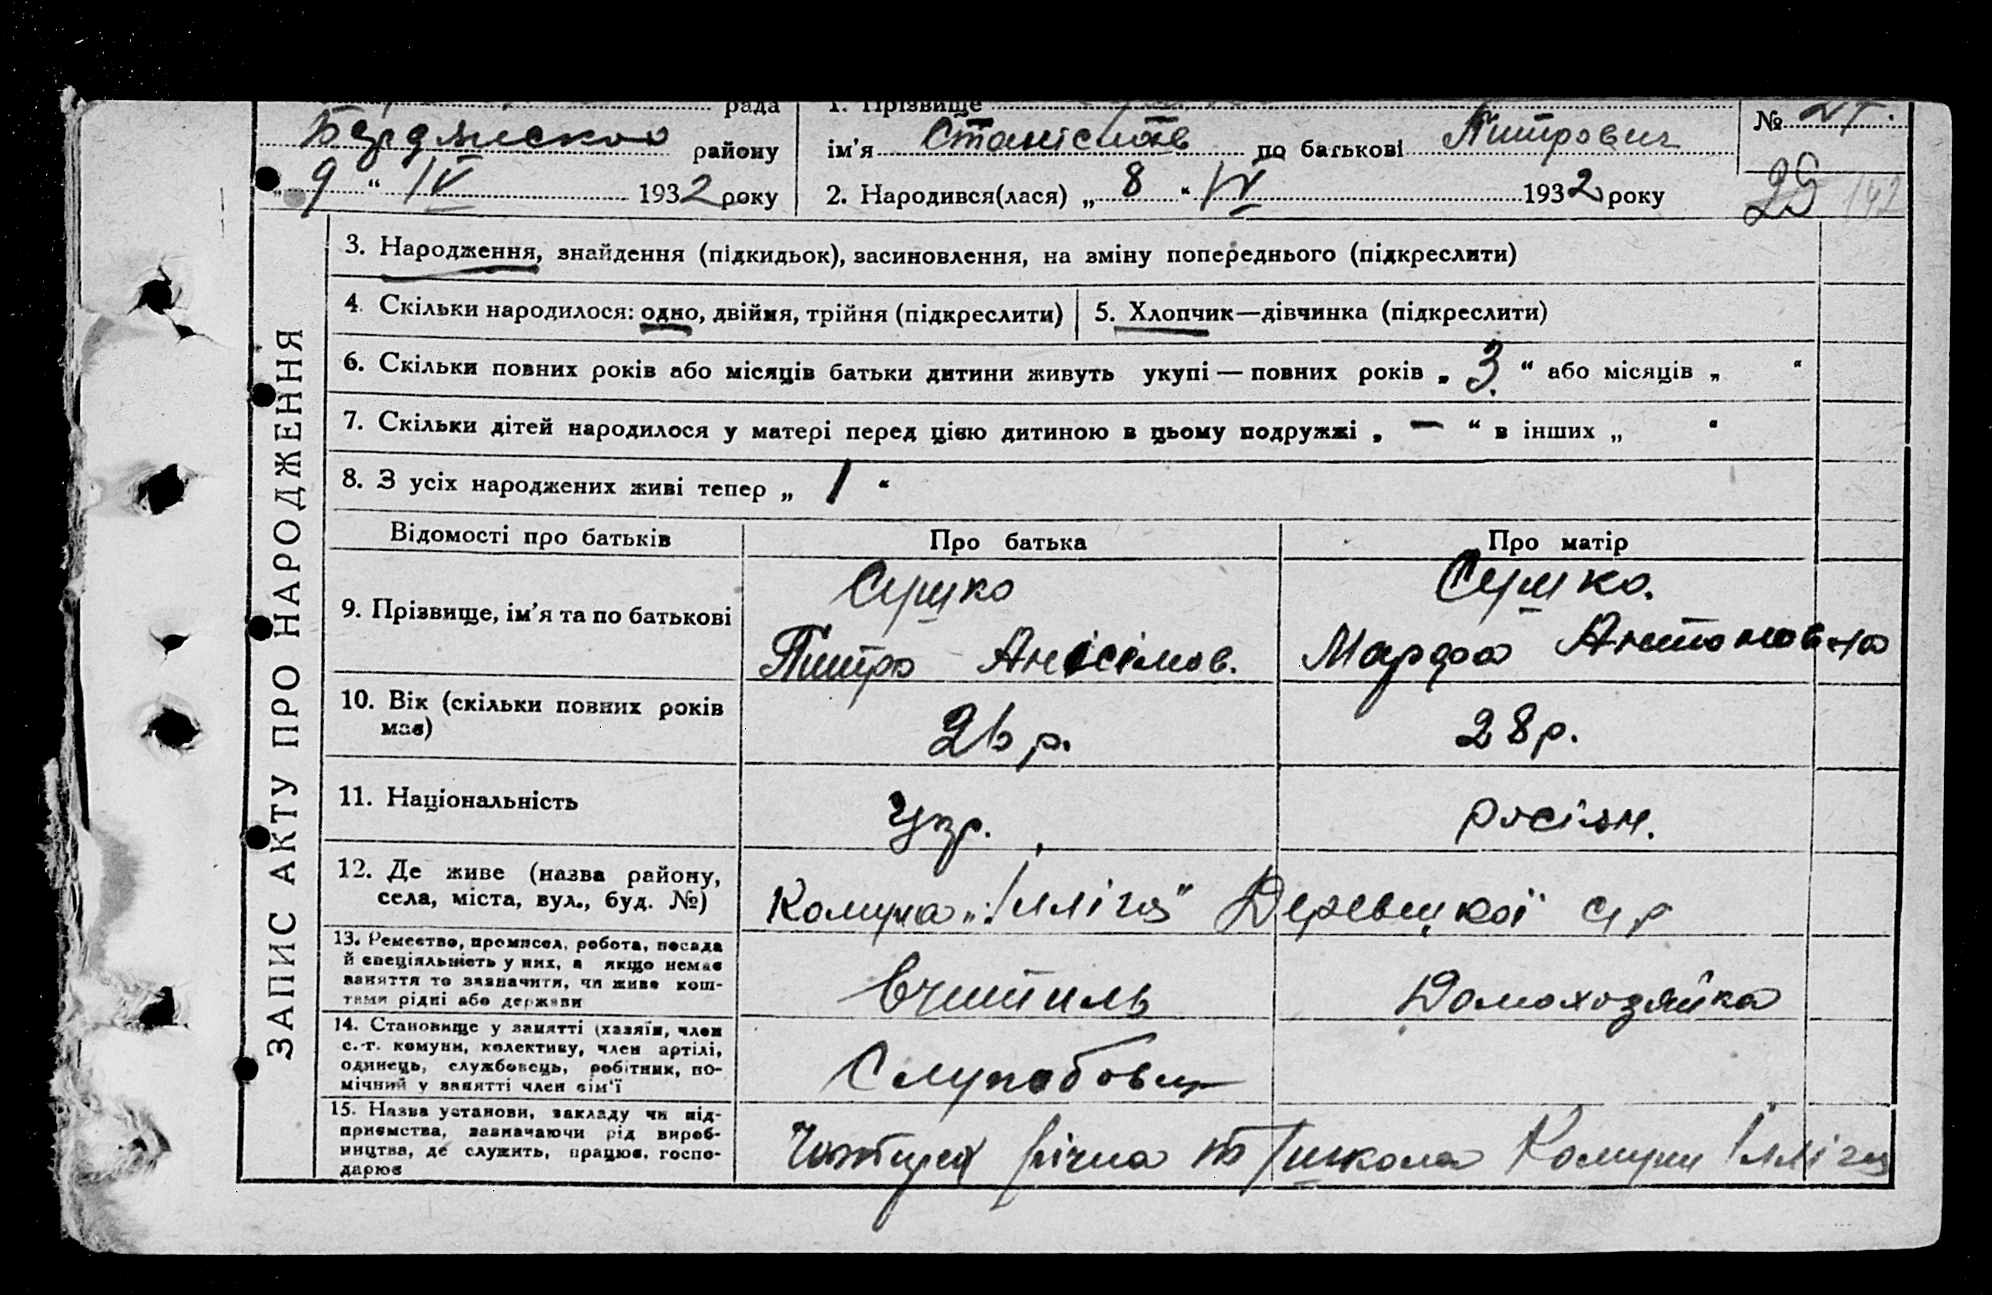 рада
1. Прізвище
№ 27.
Бердянсько
району
ім'я Станіслав по батькові Питрович
„ 9 “ IV 1932 року
2. Народився(лася) „ 8 “ IV 1932 року
29 142
ЗАПИС АКТУ ПРО НАРОДЖЕННЯ
3. Народження, знайдення (підкидьок), засиновлення, на зміну попереднього (підкреслити)
4. Скільки народилося: одно, двійня, трійня (підкреслити)
5. Хлопчик—дівчинка (підкреслити)
6. Скільки повних років або місяців батьки дитини живуть укупі — повних років „ 3 “ або місяців „ “
7. Скільки дітей народилося у матері перед цією дитиною в цьому подружжі „ — “ в інших „ “
8. З усіх народжених живі тепер „ 1 “
Відомості про батьків
Про батька
Про матір
9. Прізвище, ім'я та по батькові
Сушко
Питро Анісімов.
Сушко.
Марфа Антоновна
10. Вік (скільки повних років
має)
26 р.
28 р.
11. Національність
Укр.
росіян.
12. Де живе (назва району,
села, міста, вул., буд. №)
Комуна „Ілліча" с/р
13. Ремество, промисел, робота, посада
й спеціяльність у них, а якщо немає
заняття то зазначити, чи живе кош-
тами рідні або держави
Вчитиль
Домохозяйка
14. Становище у занятті (хазяїн, член
с.-г. комуни, колективу, член артілі,
одинець, службовець, робітник, по-
мічний у занятті член сім'ї
Службовець
15. Назва установи, закладу чи під-
приємства, зазначаючи рід вироб-
ництва, де служить, працює, госпо-
дарює
Чотирех річна школа Комуни Ілліча